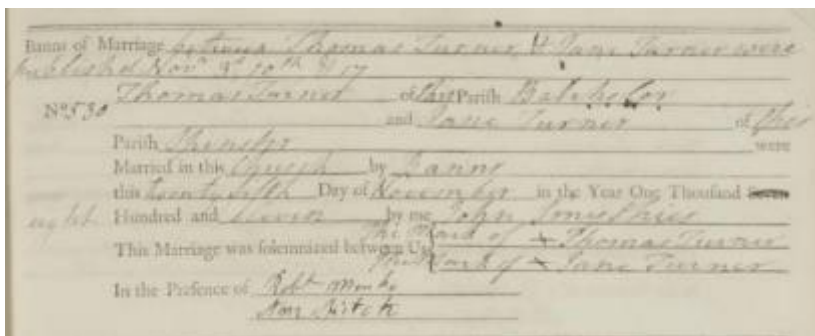 Banns of Marriage between Thomas Turner & Jane Turner were
published Novr 3d 10th & 17
Thomas Turner of this Parish Batchelor
No 530 and Jane Turner of this
Parish Spinster were
Married in this Church by Banns
this twenty fifth Day of November in the Year One Thousand Seven
eight Hundred and by me John
The Mark of x Thomas Turner
This Marriage was solemnized between Us
The Mark of x Jane Turner
In the Presence of Robt
Ann